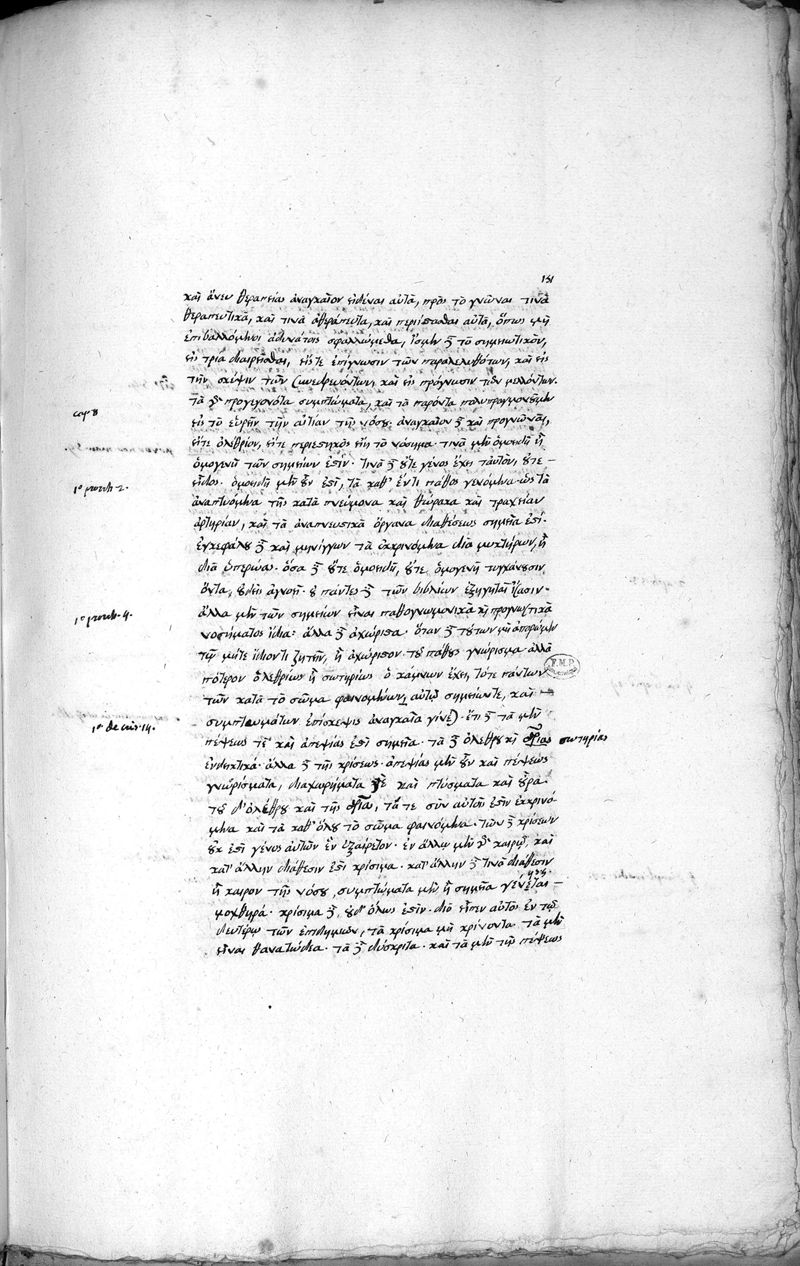 151
καὶ ἄνευ θεραπείας ἀναγκαῖον εἰδέναι αὐτὰ, πρὸς τὸ γνῶναι τινὰ
θεραπευτικὰ, καὶ τινὰ ἀθεράπευτα, καὶ περιίστασθαι αὐτὰ, ὅπως μὴ
ἐπιβαλλόμενοι ἀδυνάτοις σφαλλώμεθα, ἴσμεν δὲ τὸ σημειωτικὸν,
εἰς τρία διαιρεῖσθαι, εἴς τε ἐπίγνωσιν τῶν παρεληλυθότων, καὶ εἰς
τὴν σκέψιν τῶν συνεδρευόντων, καὶ εἰς πρόγνωσιν τῶν μελλόντων.
τὰ γὰρ προγεγονότα συμπτώματα, καὶ τὰ παρόντα πολυπραγμονοῦμεν
cap 8
εἰς τὸ εὑρεῖν τὴν αἰτίαν τῆς νόσου. ἀναγκαῖον δὲ καὶ προγνῶναι,
εἴτε ὀλέθριον, εἴτε περιεστηκὸς εἴη τὸ νόσημα. τινὰ μὲν ὁμοειδῆ ἢ
ὁμογενῆ τῶν σημείων ἐστίν. τινὰ δὲ οὔτε γένος ἔχει ταυτὸν, οὔτε
1º prorrh. 2.
εἶδος. ὁμοειδῆ μὲν οὖν ἐστὶ, τὰ καθ' ἕν τι πάθος γενόμενα. ὡς τὰ
ἀναπτυόμενα τῆς κατὰ πνεύμονα καὶ θώρακα καὶ τραχεῖαν
ἀρτηρίαν, καὶ τὰ ἀναπνευστικὰ ὄργανα διαθέσεως σημεῖα ἐστί.
ἐγκεφάλου δὲ καὶ μηνίγγων τὰ ἐκκρινόμενα διὰ μυκτήρων, ἢ
διὰ ὑπερώας. ὅσα δὲ οὔτε ὁμοειδῆ, οὔτε ὁμογενῆ τυγχάνουσιν
ὄντα, οὐδεὶς ἀγνοεῖ. οἱ πάντες δὲ τῶν βιβλίων ἐξηγηταὶ ἴσασιν.
1º prorrh. 4.
ἀλλὰ μὲν τῶν σημείων εἶναι παθογνωμονικὰ καὶ προγνωστικὰ
νοσήματος ἴδια. ἄλλα δὲ ἀχώριστα. ὅταν δὲ τούτων μὴ ἀπορῶμεν
τῷ μήτε ἴδιον τι ζητεῖν, ἢ ἀχώριστον τοῦ πάθους γνώρισμα ἀλλὰ
πότερον ὀλεθρίως ἢ σωτηρίως ὁ κάμνων ἔχει, τότε πάντων
τῶν κατὰ τὸ σῶμα φαινομένων αὐτῷ σημείων τε, καὶ
συμπτωμάτων ἐπίσκεψις ἀναγκαία γίνεται. ἔτι δὲ τὰ μὲν
1º de cris. 14.
πέψεώς τε καὶ ἀπεψίας ἐστὶ σημεῖα. τὰ δὲ ὀλέθρου καὶ σωτηρίας
ἐνδεικτικά. ἄλλα δὲ τῆς κρίσεως. ἀπεψίας μὲν οὖν καὶ πέψεως
γνωρίσματα, διαχωρήματα τὲ καὶ πτύσματα καὶ οὖρα.
τοῦ δ' ὀλέθρου καὶ τῆς σωτηρίας, ταῦτά τε σὺν αὐτοῖς ἐστὶν ἐκκρινό
μενα καὶ τὰ καθ' ὅλου τὸ σῶμα φαινόμενα. τῶν δὲ κρίσεων
οὐκ ἐστὶ γένος αὐτῶν ἓν ἐξαίρετον. ἐν ἄλλῳ μὲν γὰρ καιρῷ, καὶ
κατ' ἄλλην διάθεσιν ἐστὶ κρίσιμα. κατ' ἄλλην δὲ τινὰ διάθεσιν
ἢ καιρὸν τῆς νόσου συμπτώματα μὲν ἢ σημεῖα γένηται
μοχθηρά. κρίσιμα δὲ, οὐδ' ὅλως ἐστὶν. διὸ εἶπεν αὐτὸς ἐν τῷ
δευτέρῳ τῶν ἐπιδημιῶν, τὰ κρίσιμα μὴ κρίνοντα τὰ μὲν
εἶναι θανατώδεα. τὰ δὲ δύσκριτα. καὶ τὰ μὲν τῆς πέψεως